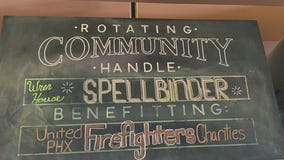 ROTATING
COMMUNITY
HANDLE
Wren House SPELLBINDER
BENEFITTING
United PHX Firefighters Charities